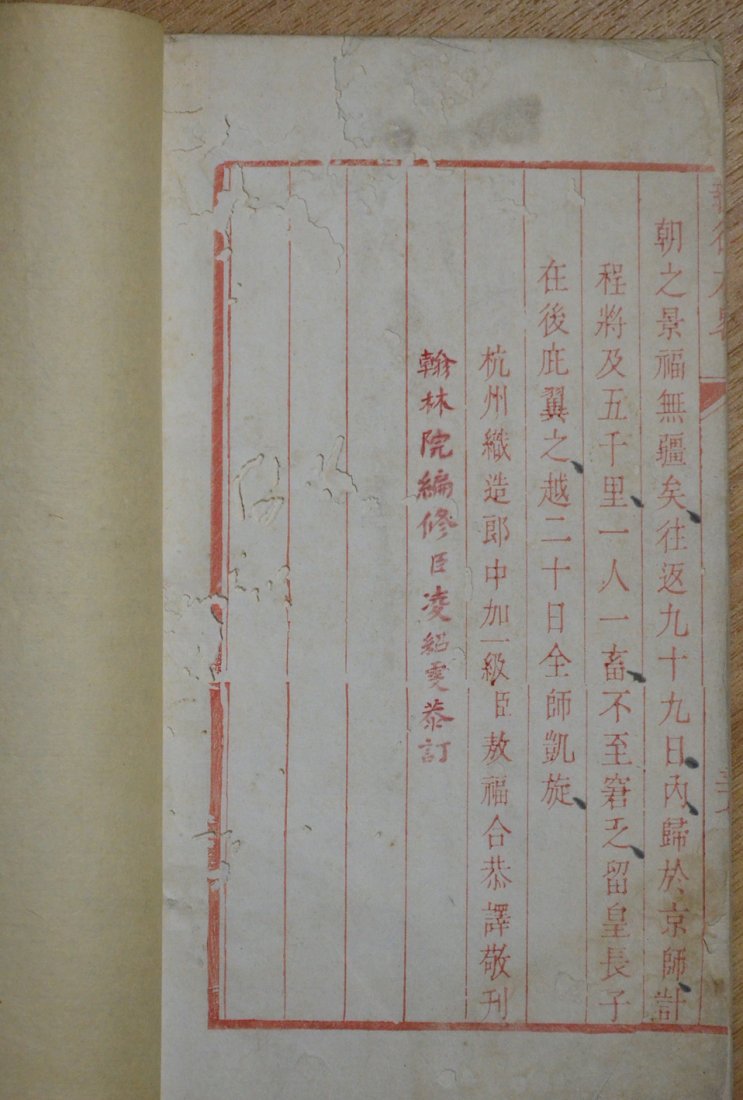 朝之景福無疆矣、往返九十九日、內歸於、京師、計
程將及五千里、一人一畜、不至窘乏、留皇長子
在後庇翼之、越二十日全師凱旋、
杭州織造郎中加一級臣敖福合恭譯敬刊
翰林院編修臣凌紹雯恭訂